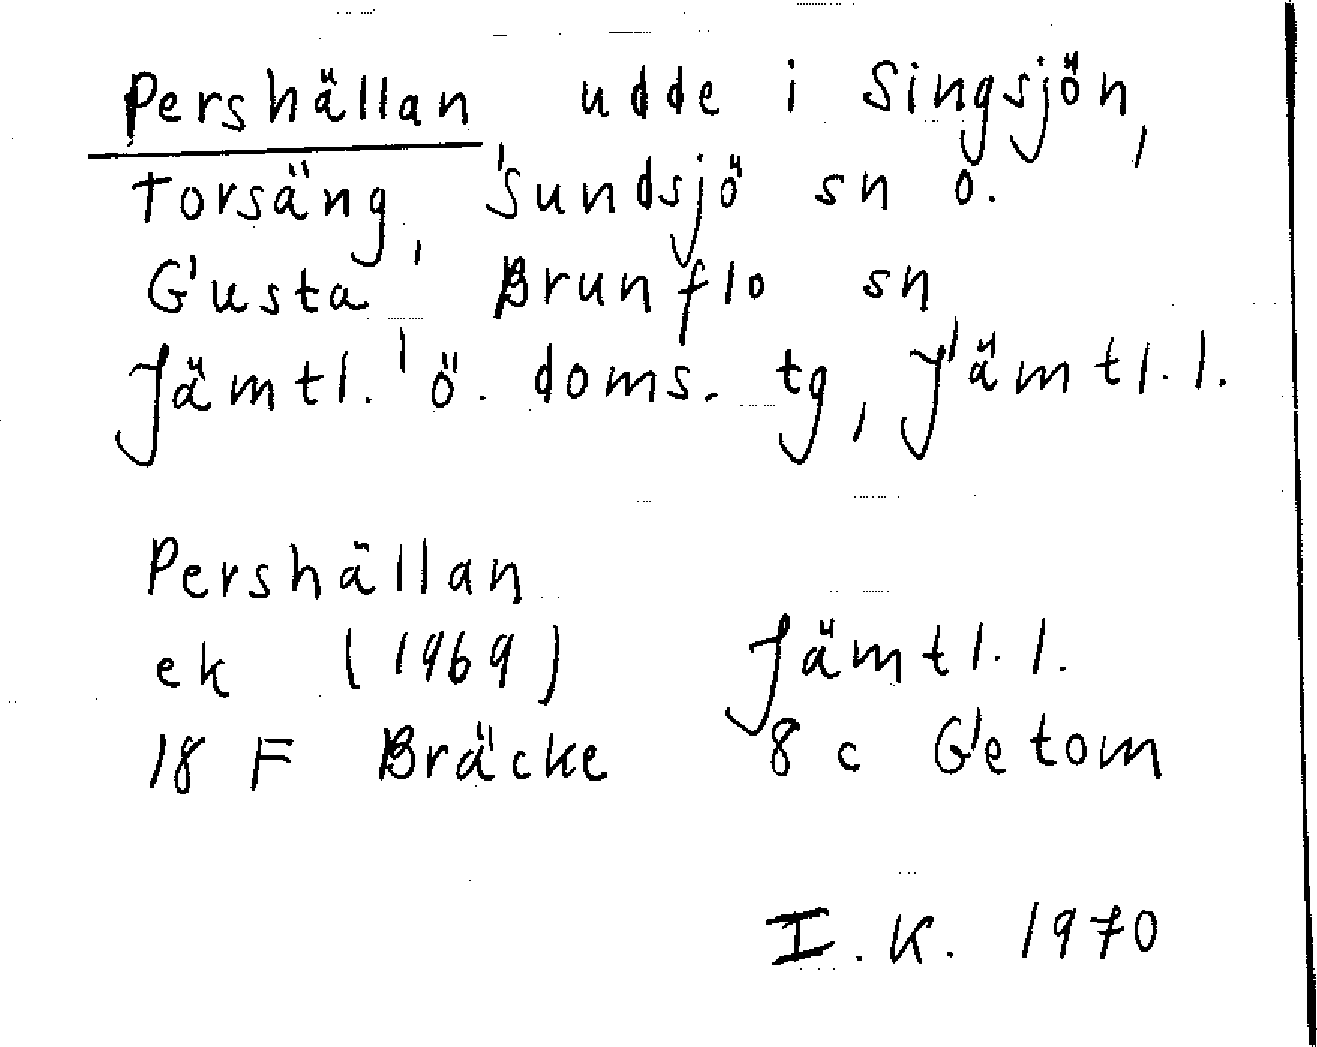 Pershällan udde i Singsjön,
Torsäng, Sundsjö sn o.
Gusta, Brunflo sn
Jämtl. ö. doms. tg, Jämtl. l.
Pershällan
ek (1969) Jämtl. l.
18 F Bräcke 8 c Getom
I. K. 1970